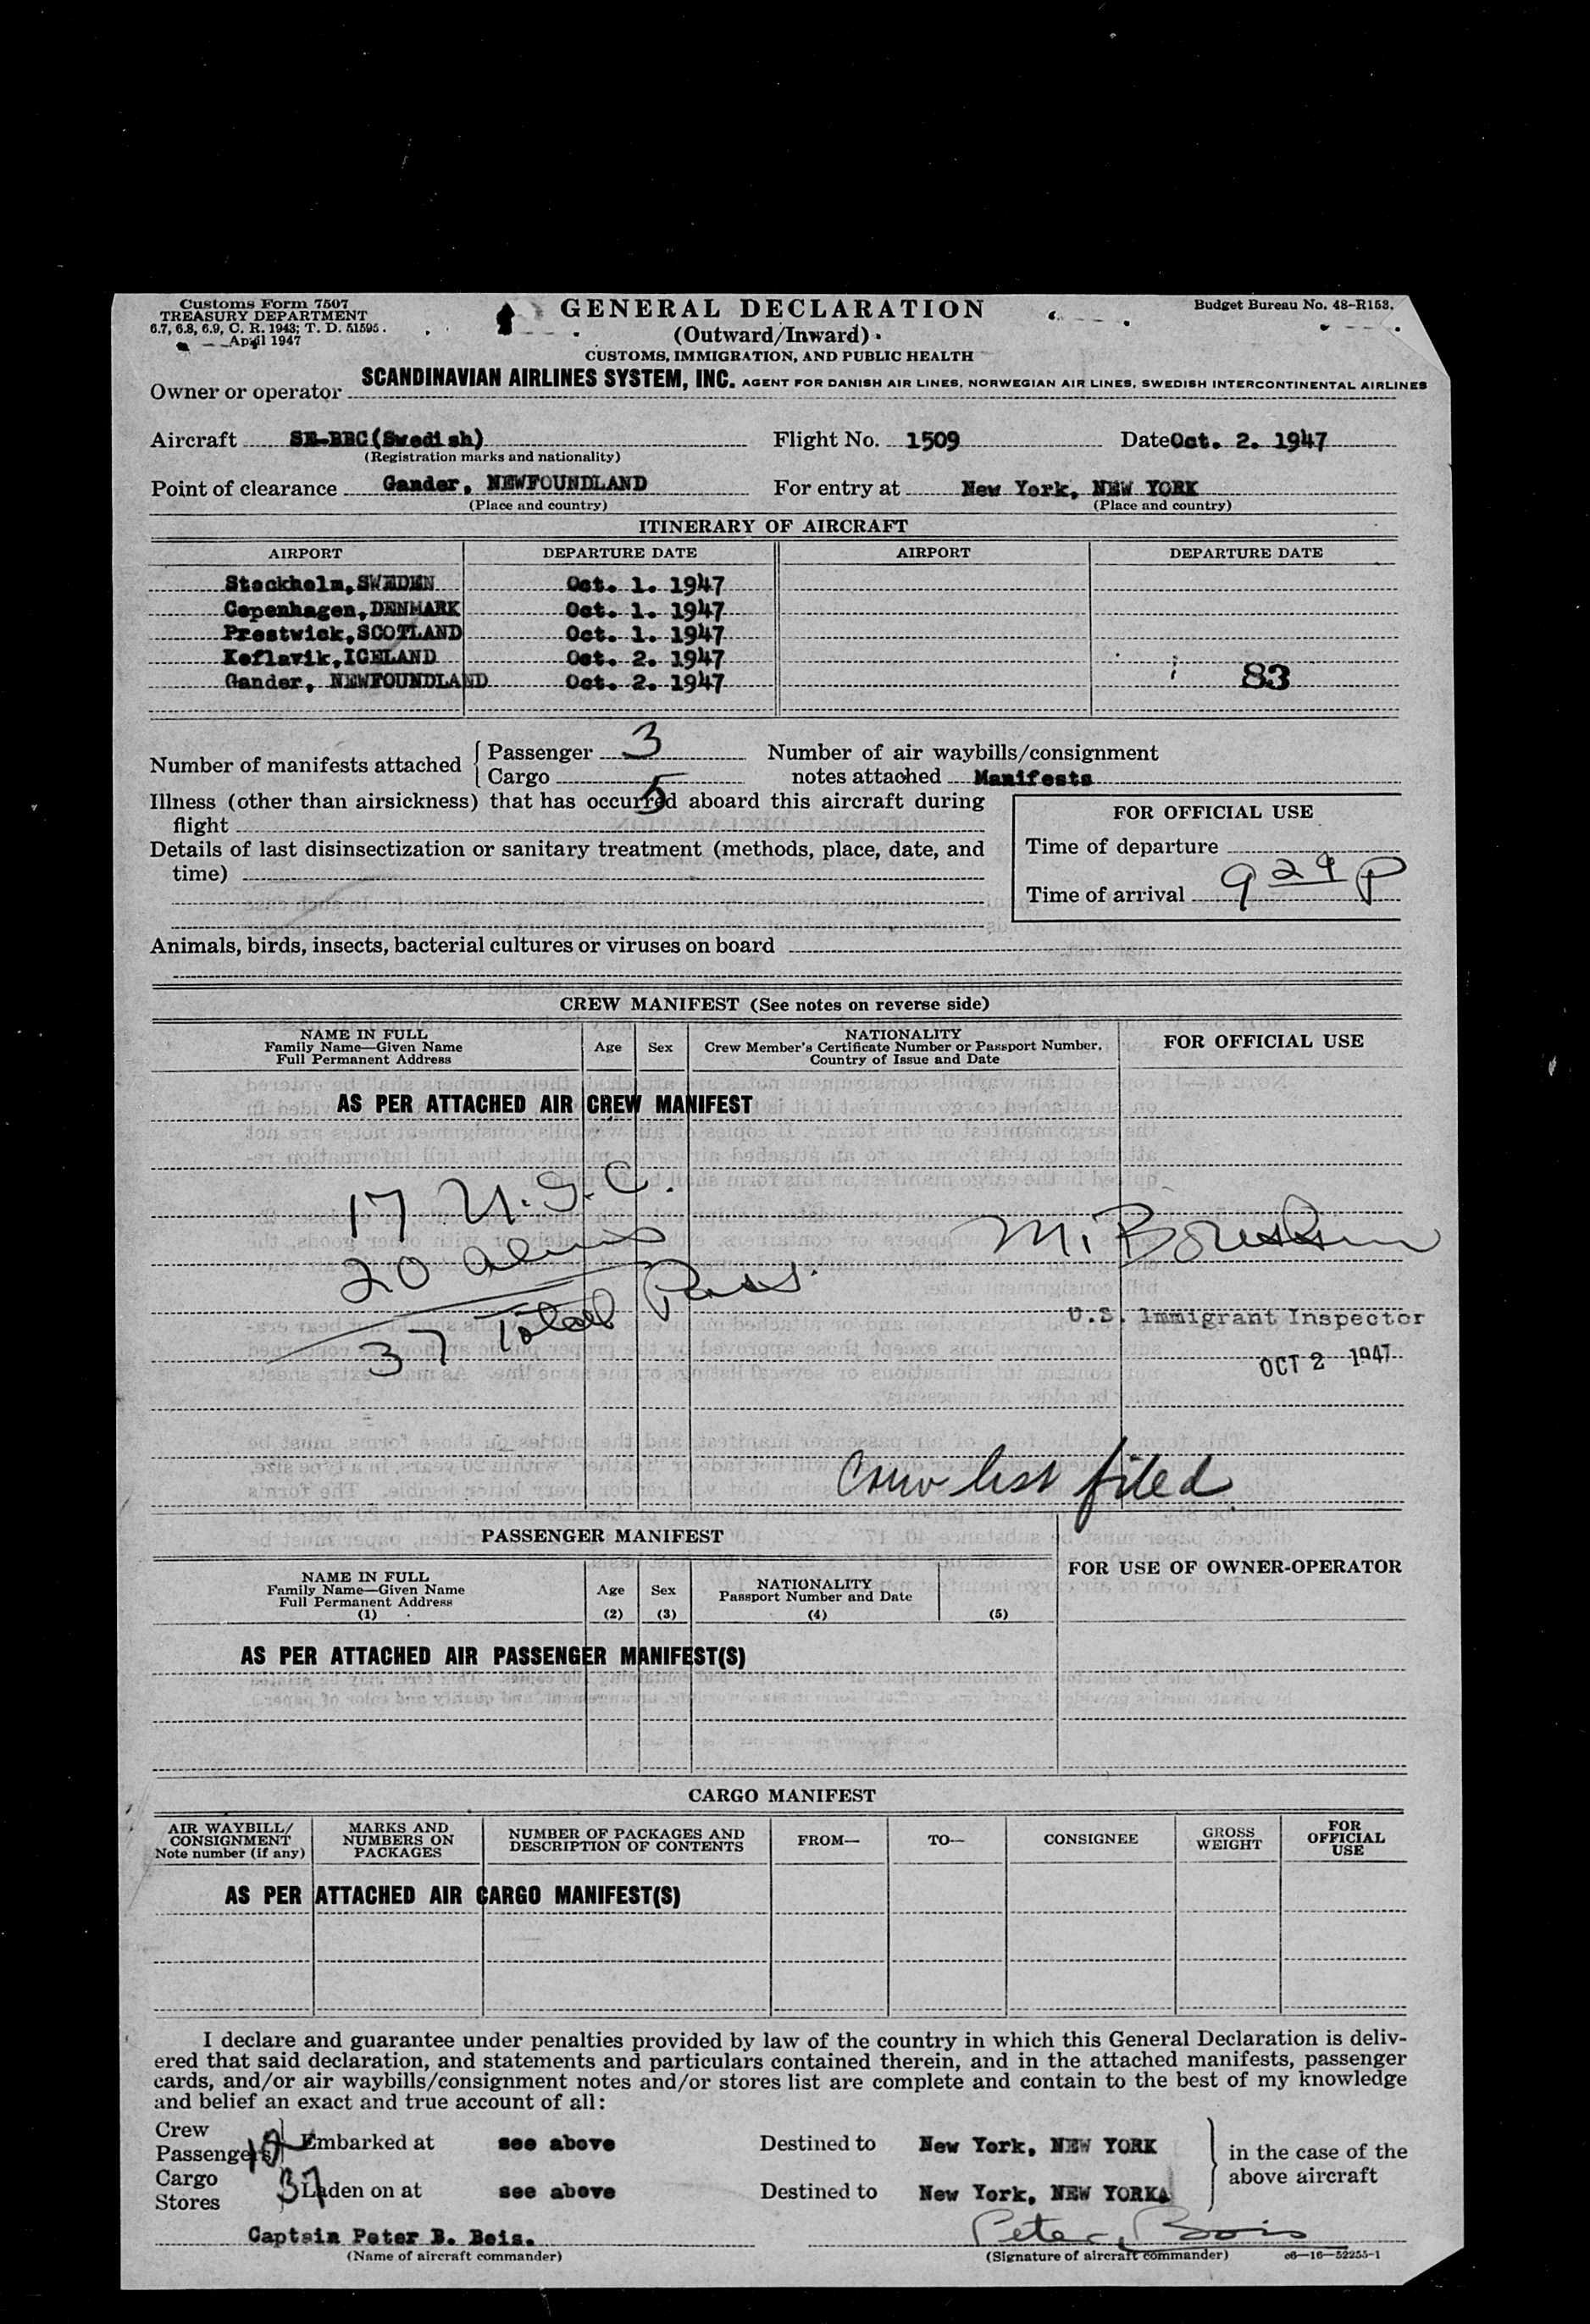 Customs Form 7507
TREASURY DEPARTMENT
6.7, 6.8, 6.9, C. R. 1943; T. D. 51595.
April 1947
GENERAL DECLARATION
(Outward/Inward)
CUSTOMS, IMMIGRATION, AND PUBLIC HEALTH
Budget Bureau No. 48-R153.
Owner or operator SCANDINAVIAN AIRLINES SYSTEM, INC. AGENT FOR DANISH AIR LINES, NORWEGIAN AIR LINES, SWEDISH INTERCONTINENTAL AIRLINES
Aircraft SE-BBC (Swedish) Flight No. 1509 Date Oct. 2. 1947
(Registration marks and nationality)
Point of clearance Gander, NEWFOUNDLAND For entry at New York, NEW YORK
(Place and country) (Place and country)
ITINERARY OF AIRCRAFT
AIRPORT DEPARTURE DATE AIRPORT DEPARTURE DATE
Stockholm, SWEDEN Oct. 1. 1947
Copenhagen, DENMARK Oct. 1. 1947
Prestwick, SCOTLAND Oct. 1. 1947
Keflavik, ICELAND Oct. 2. 1947
Gander, NEWFOUNDLAND Oct. 2. 1947 83
Number of manifests attached { Passenger 3 Number of air waybills/consignment
Cargo 5 notes attached Manifests
Illness (other than airsickness) that has occurred aboard this aircraft during
flight
FOR OFFICIAL USE
Details of last disinsectization or sanitary treatment (methods, place, date, and
time)
Time of departure
Time of arrival 9 29 P
Animals, birds, insects, bacterial cultures or viruses on board
CREW MANIFEST (See notes on reverse side)
NAME IN FULL
Family Name—Given Name
Full Permanent Address
Age
Sex
NATIONALITY
Crew Member's Certificate Number or Passport Number,
Country of Issue and Date
FOR OFFICIAL USE
AS PER ATTACHED AIR CREW MANIFEST
17 U.S.C.
20 aliens
37 Total Pass.
M.
U.S. Immigrant Inspector
OCT 2 1947
Crew list filed
PASSENGER MANIFEST
NAME IN FULL
Family Name—Given Name
Full Permanent Address
(1)
Age
(2)
Sex
(3)
NATIONALITY
Passport Number and Date
(4)
(5)
FOR USE OF OWNER-OPERATOR
AS PER ATTACHED AIR PASSENGER MANIFEST(S)
CARGO MANIFEST
AIR WAYBILL/
CONSIGNMENT
Note number (if any)
MARKS AND
NUMBERS ON
PACKAGES
NUMBER OF PACKAGES AND
DESCRIPTION OF CONTENTS
FROM—
TO—
CONSIGNEE
GROSS
WEIGHT
FOR
OFFICIAL
USE
AS PER ATTACHED AIR CARGO MANIFEST(S)
I declare and guarantee under penalties provided by law of the country in which this General Declaration is deliv-
ered that said declaration, and statements and particulars contained therein, and in the attached manifests, passenger
cards, and/or air waybills/consignment notes and/or stores list are complete and contain to the best of my knowledge
and belief an exact and true account of all:
Crew
Passengers Embarked at see above Destined to New York, NEW YORK
in the case of the
above aircraft
Cargo
Stores 37 Laden on at see above Destined to New York, NEW YORK
Captain Peter B. Bois. Peter Bois
(Name of aircraft commander) (Signature of aircraft commander) c6—16—52255-1